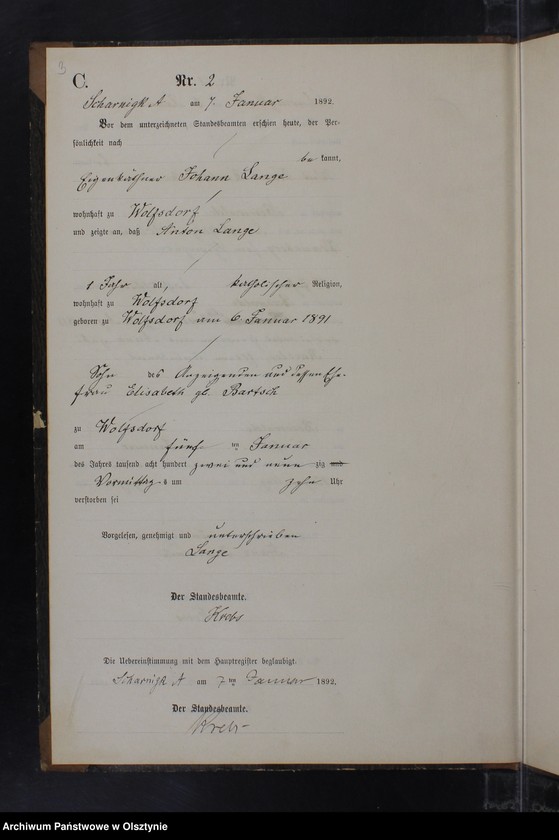 B
C.
Nr. 2
Scharnigk A am 7. Januar 1892.
Vor dem unterzeichneten Standesbeamten erschien heute, der Per-
sönlichkeit nach
be kannt,
Eigenkäthner Johann Lange
wohnhaft zu Wolfsdorf
und zeigte an, daß Anton Lange
1 Jahr alt, katholischer Religion,
wohnhaft zu Wolfsdorf
geboren zu Wolfsdorf am 6. Januar 1891
Sohn des Anzeigenden und dessen Ehe-
frau Elisabeth gb. Bartsch
zu Wolfsdorf
am fünf ten Januar
des Jahres tausend acht hundert zwei und neun zig und
Vormittag s um zehn Uhr
verstorben sei
Vorgelesen, genehmigt und unterschrieben
Lange
Der Standesbeamte.
Krebs
Die Uebereinstimmung mit dem Hauptregister beglaubigt.
Scharnigk A am 7ten Januar 1892.
Der Standesbeamte.
Krebs
Archiwum Państwowe w Olsztynie